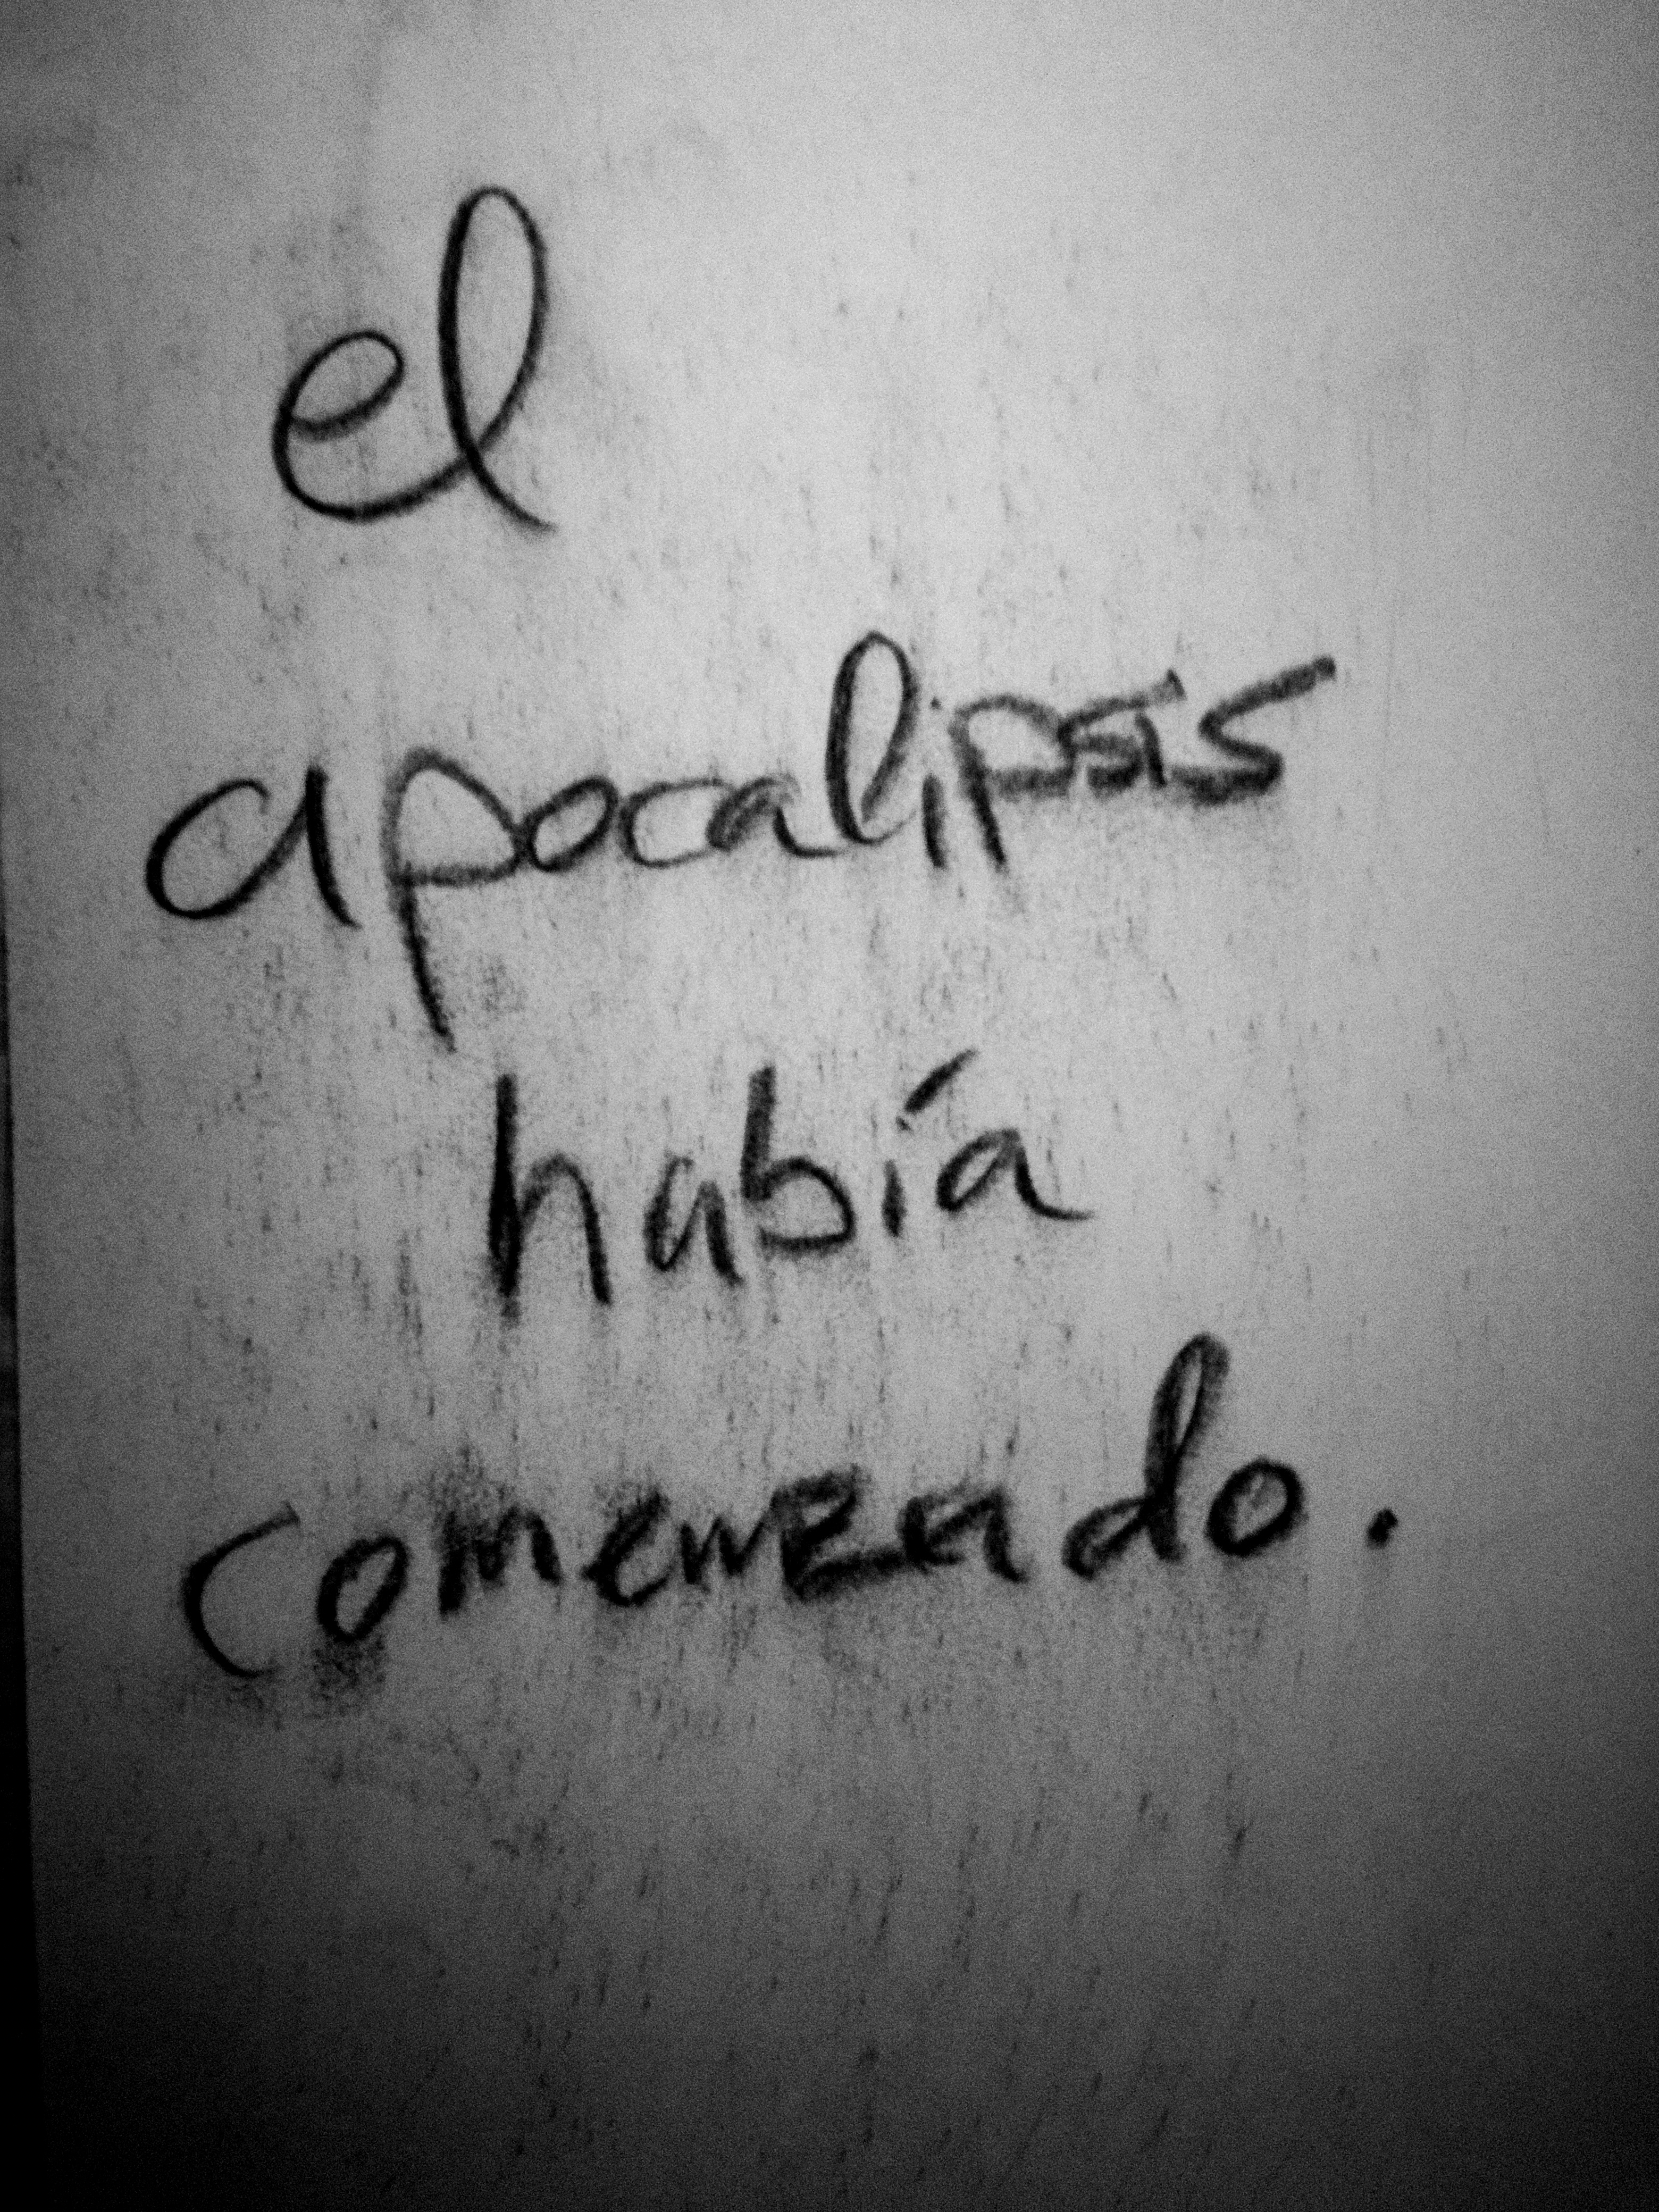 el
apocalipsis
había
comenzado.